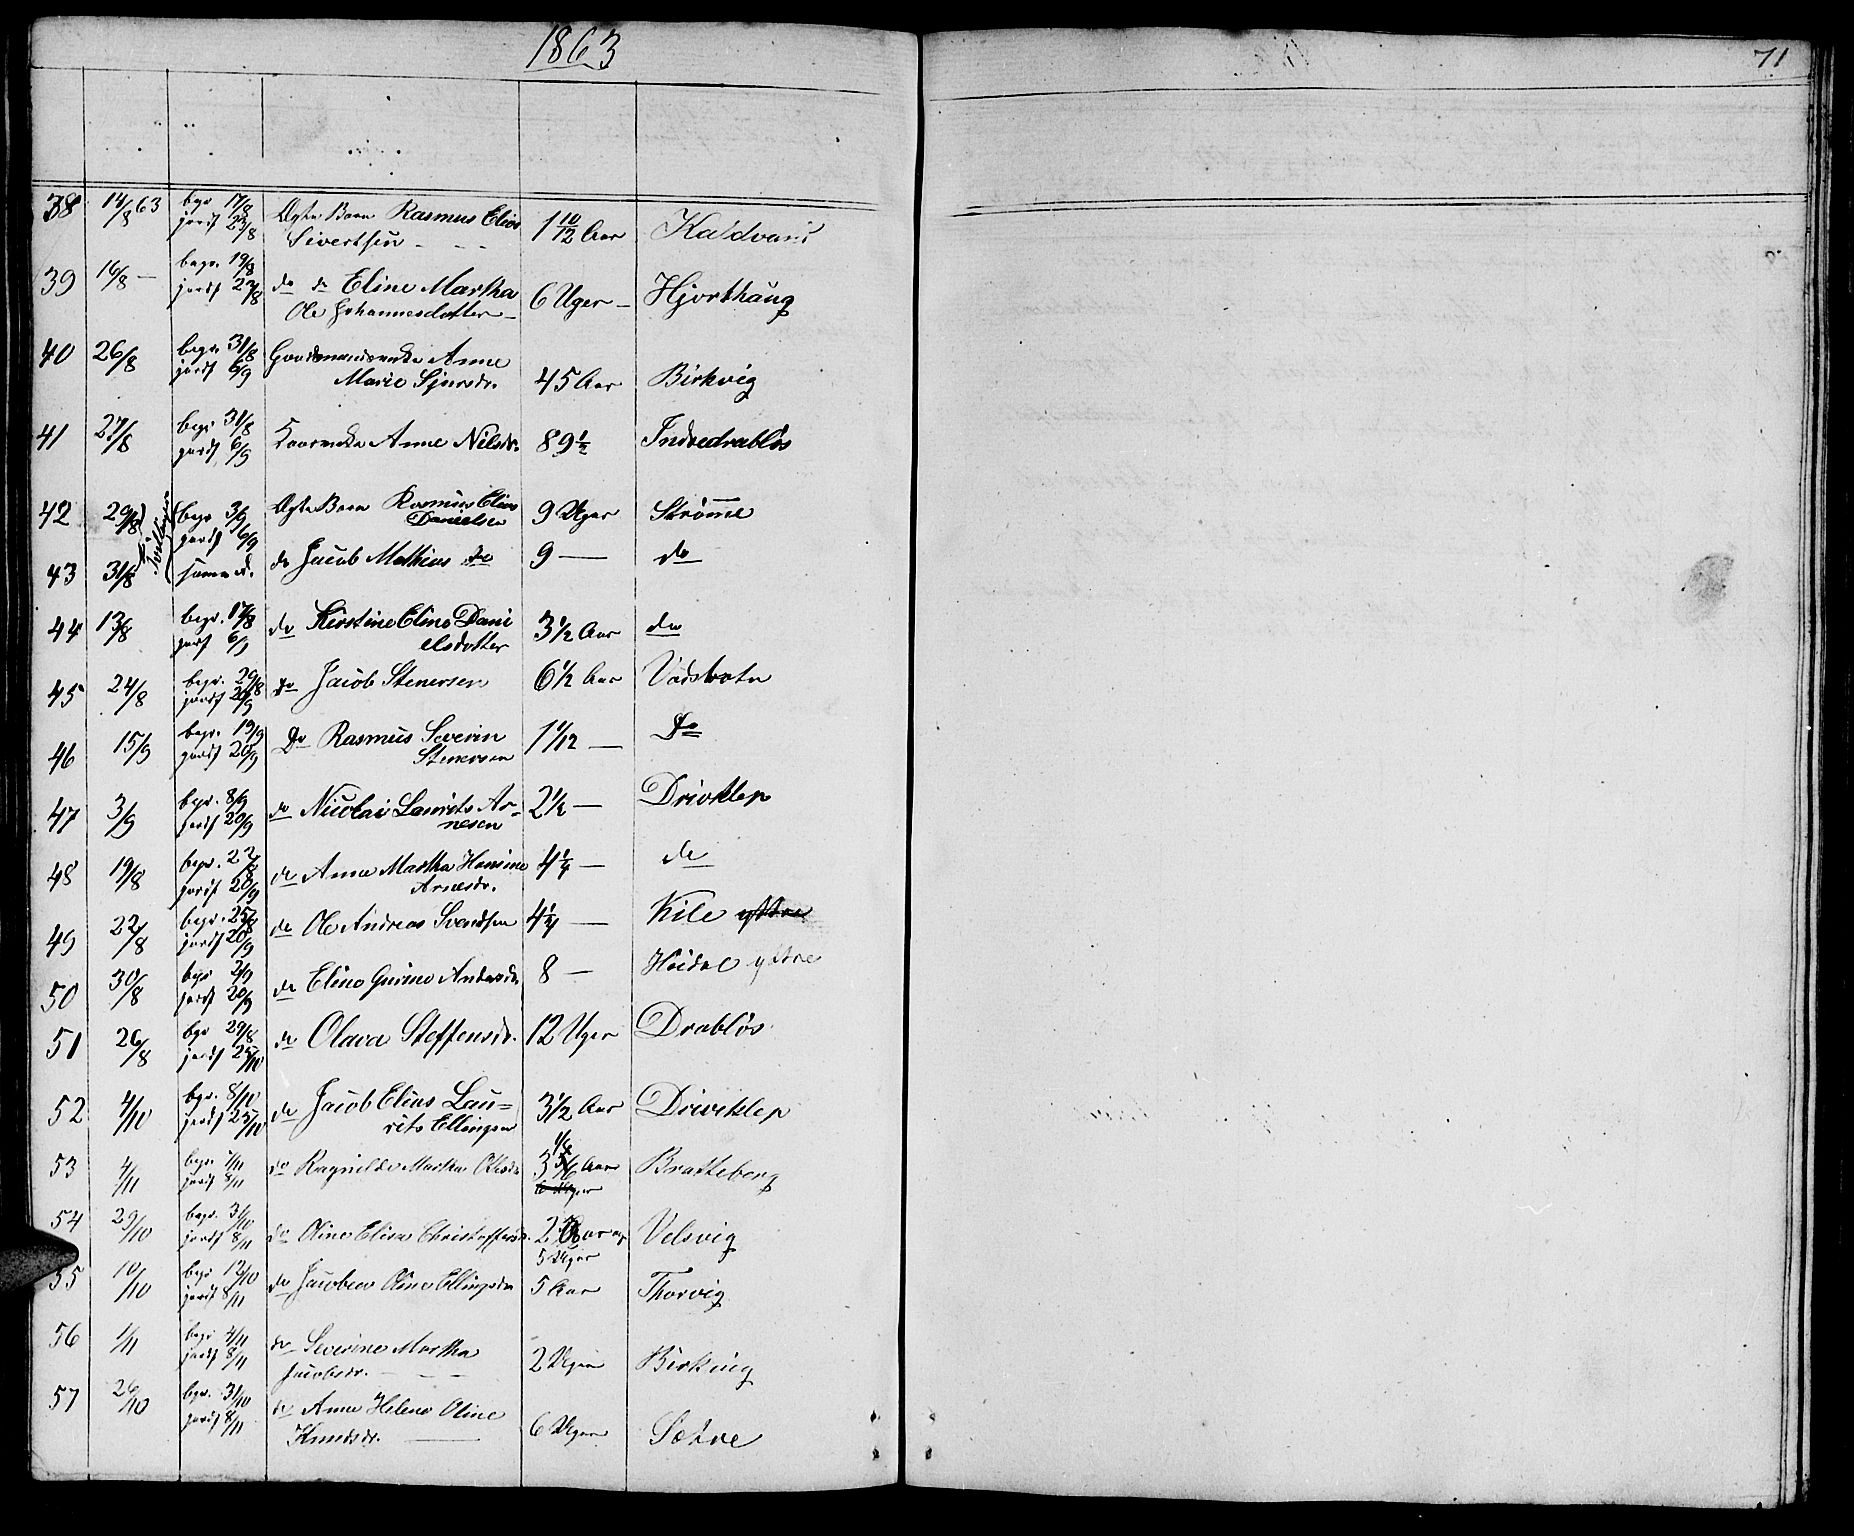 1863
71
38 14/8 63 begr 17/8 Ægte Barn Rasmus Elias 1 10/12 Aar Kaldvani
jordf 23/8 Sivertsen
39 16/8 — begr. 19/8 do do Eline Martha 6 Uger — Hjorthaug
jordf 23/8 Ole Johannesdatter —
40 26/8 begr. 31/8 Gaardmandsenke Anne
jordf 6/9 Marie Sjursdr. 45 Aar Birkvig
41 27/8 begr 31/8 Kaarenke Anne Nilsdr. 89 1/2 Indredrabløs
jordf 6/9
42 29/8 begr 3/9 Ægte Barn Rasmus Elias 9 Uger Strømme
jordf 6/9 Danielsen
43 31/8 Tvillinger samme d. do Jacob Mathias do 9 — do
44 13/8 begr. 17/8 do Kirstine Eline Dani 3 1/2 Aar do
jordf 6/9 elsdatter
45 24/8 begr. 29/8 do Jacob Stenersen 6 1/2 Aar Vadsbotn
jordf 20/9
46 15/9 begr. 19/9 Do Rasmus Severin 1 1/12 — Do
jordf 20/9 Stenersen
47 3/9 begr. 8/9 do Nicolai Laurits Ar- 2 1/2 — Drivklep
jordf 20/9 nesen
48 19/8 begr. 22/8 do Anne Martha Hansine 4 1/4 — do
jordf 20/9 Arnesdr.
49 22/8 begr. 25/8 do Ole Andreas Svendsen 4 1/4 — Kile yttre
jordf 20/9
50 30/8 begr 2/9 do Eline Gurine Andersdr. 8 — Høidal yttre
jordf 20/9
51 26/8 bgr 29/8 do Olava Steffensdr. 12 Uger Drabløs
jordf 25/10
52 4/10 bgr. 8/10 do Jacob Elias Lau= 3 1/2 Aar Driviklep
jordf 25/10 rits Ellingsen
53 4/11 begr. 7/11 do Ragnilde Martha Olesdr 3 Aar Bratteberg
jordf 8/11 6 Uger
54 29/10 begr. 31/10 do Oline Elisa Christoffersdr. 2 Aar og Velsvig
jordf 8/11 5 Uger
55 10/10 begr 13/10 do Jacobea Oline Ellingsdr 5 Aar Thorvig
jordf 8/11
56 1/11 begr 4/11 do Severine Martha
jordf 8/11 Jacobsdr. — — — 2 Uger Birkvig
57 26/10 begr. 31/10 do Anne Helene Oline
jordf 8/11 Knudsdr. — 6 Uger Sætre